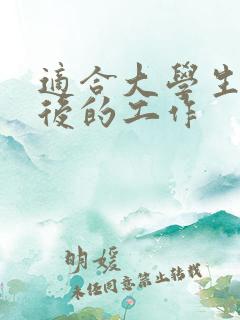 適合大學生
後的工作
明媛
未经同意禁止转载